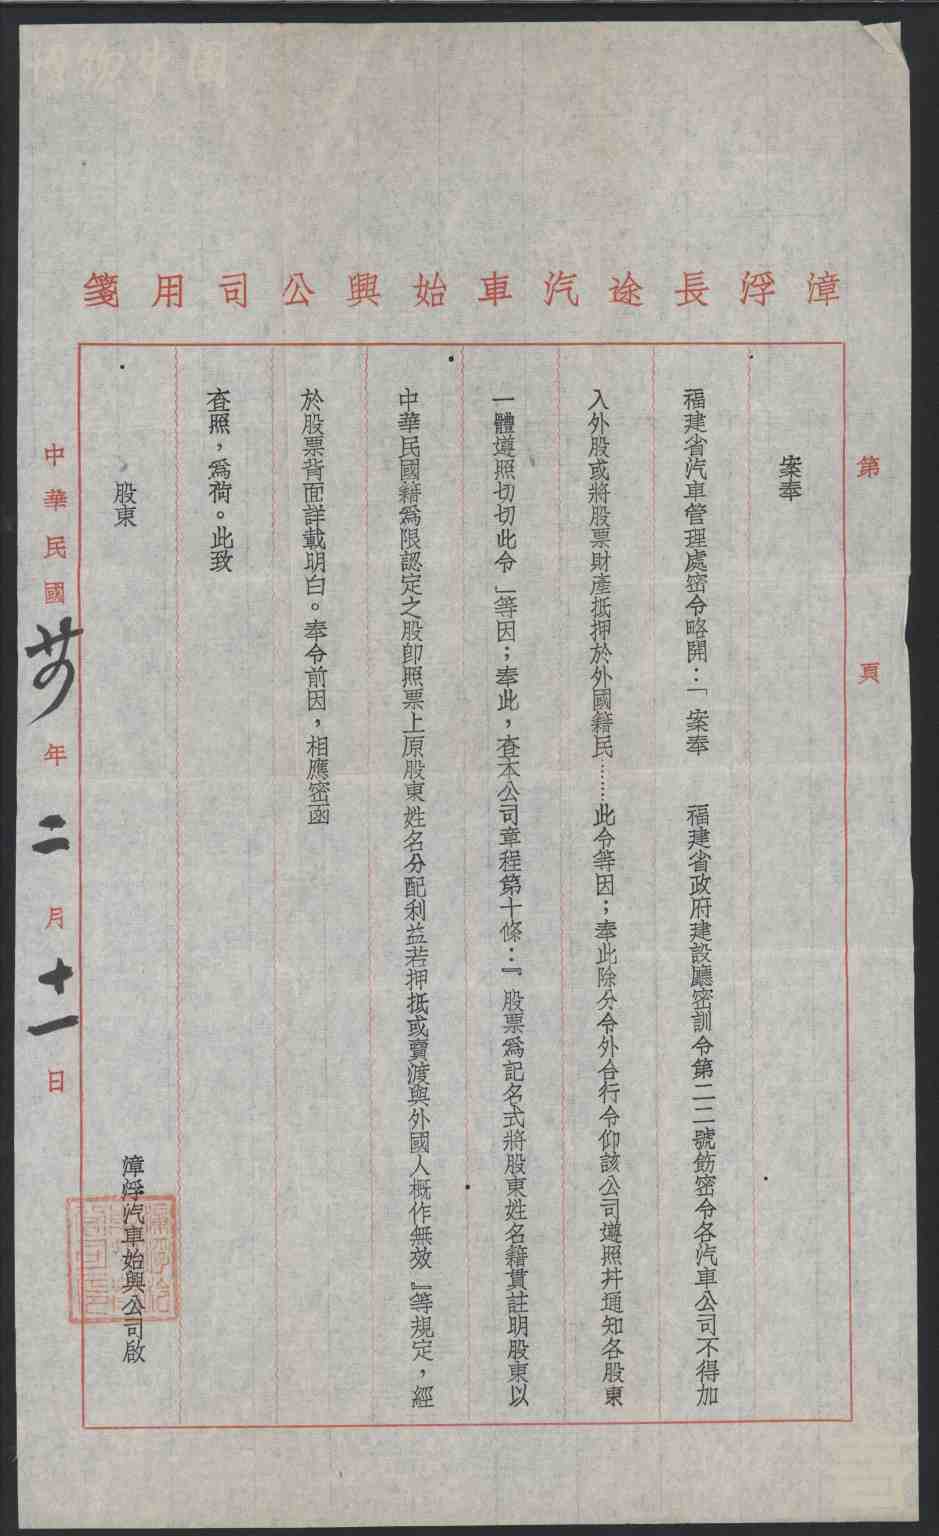 漳浮長途汽車始興公司用箋
第 頁
案奉
福建省汽車管理處密令略開：「案奉 福建省政府建設廳密訓令第二二號飭密令各汽車公司不得加
入外股或將股票財產抵押於外國籍民……此令等因；奉此除分令外合行令仰該公司遵照并通知各股東
一體遵照切切此令」等因；奉此，查本公司章程第十條：『股票爲記名式將股東姓名籍貫註明股東以
中華民國籍爲限認定之股卽照票上原股東姓名分配利益若押抵或賣渡與外國人概作無效』等規定，經
於股票背面詳載明白。奉令前因，相應密函
查照，爲荷。此致
股東
漳浮汽車始興公司啟
中華民國廿四年二月十一日